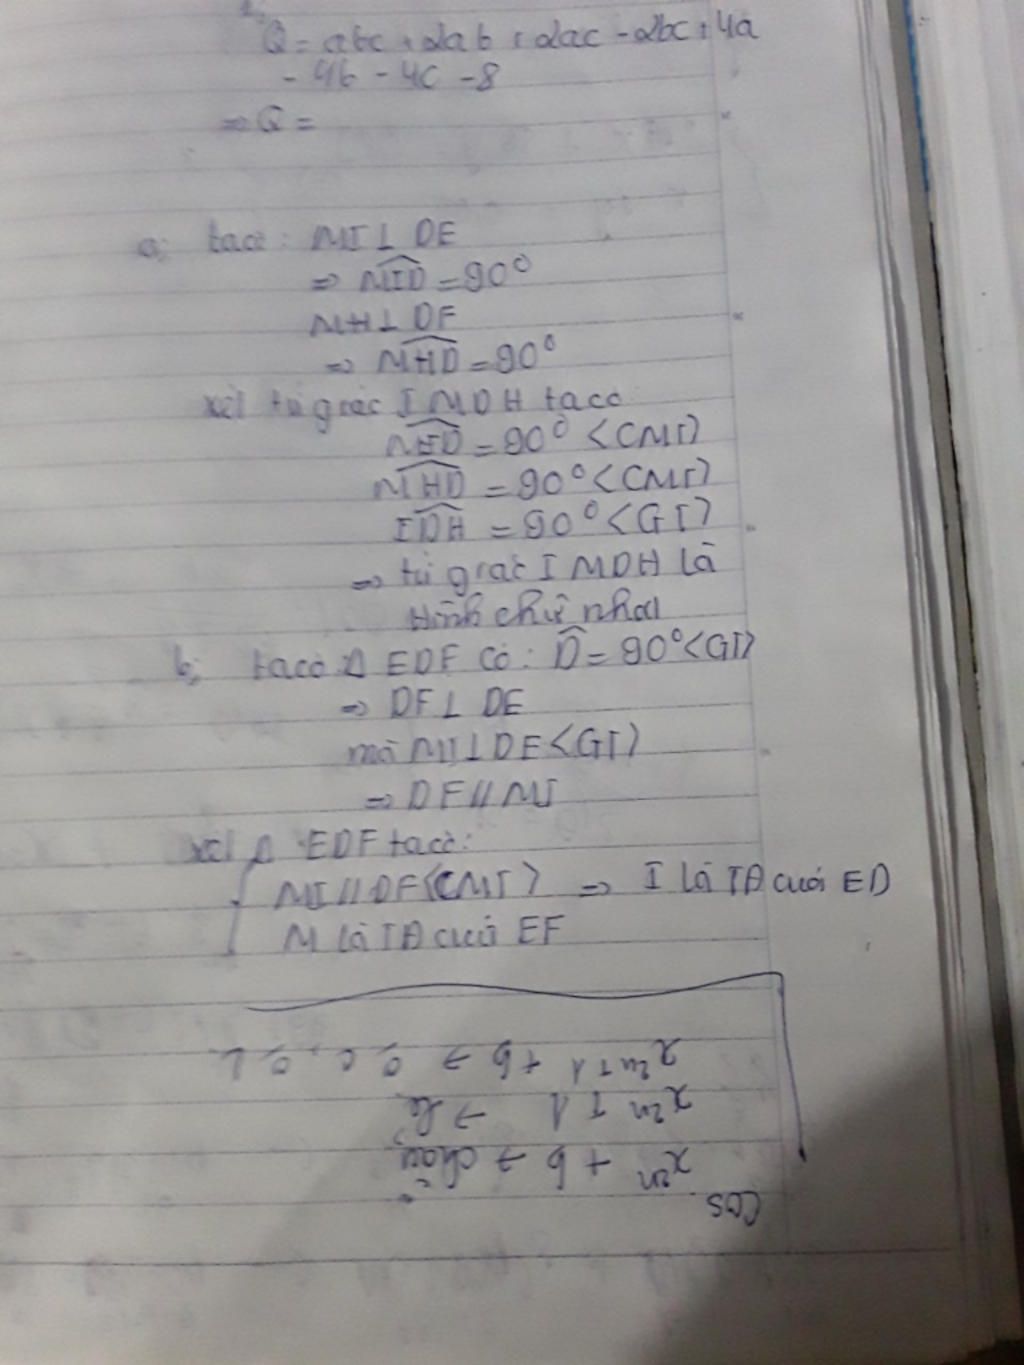 Q = abc + 2ab + 2ac - 2bc + 4a
- 4b - 4c - 8
=> Q =
a; ta có: MI ⊥ DE
=> MID = 90°
MH ⊥ DF
=> MHD = 90°
xét tứ giác IMDH ta có
MID = 90° <CMT>
MHD = 90° <CMT>
IDH = 90° <GT>
=> tứ giác IMDH là
Hình chữ nhật
b; ta có Δ EDF có: D = 90° <GT>
=> DF ⊥ DE
mà MI ⊥ DE <GT>
=> DF // MI
xét Δ EDF ta có:
MI // DF <CMT> => I là TĐ của ED
M là TĐ của EF
cos
x²ⁿ + b → chẵn
x²ⁿ + 1 → lẻ